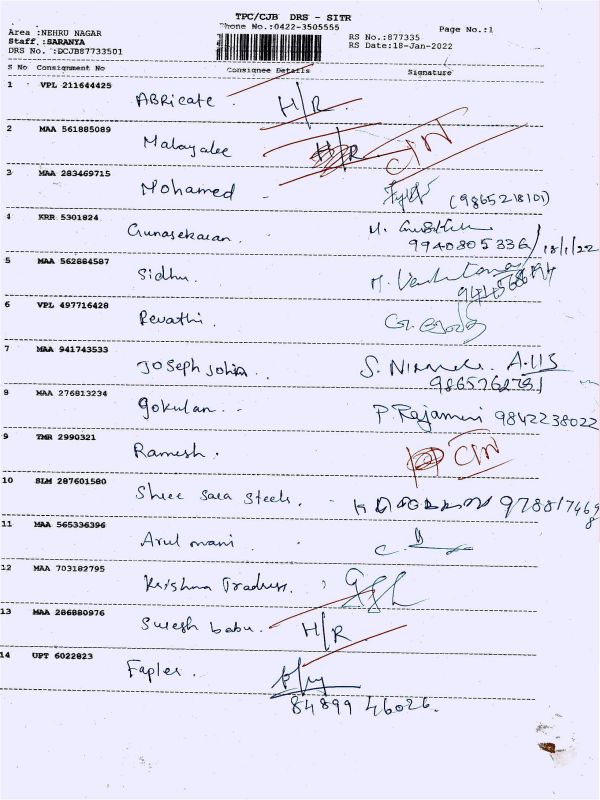 TPC/CJB DRS - SITR
Phone No.:0422-3505555
Page No.:1
Area :NEHRU NAGAR
Staff :SARANYA
DRS No. :DCJB87733501
RS No.:877335
RS Date:18-Jan-2022
S No Consignment No Consignee Details Signature
1 VPL 211644425
Abricate H/R
2 MAA 561885089
Malayalee H/R C/N
3 MAA 283469715
Mohamed (9865218101)
4 KRR 5301824
Gunasekaran. M.
9940805336/18/1/22
5 MAA 562884587
Sidhu. M.
6 VPL 497716428
Revathi.
7 MAA 941743533
Joseph John. S.
8 MAA 276813234
Gokulan. P. Rajamani 9842238022
9 TMR 2990321
Ramesh. C/N
10 SLM 287601580
Shree Sara Steels.
11 MAA 565336396
Arul mani.
12 MAA 703182795
Krishna Traders.
13 MAA 286880976
Suresh babu. H/R
14 UPT 6022823
84899 46026.